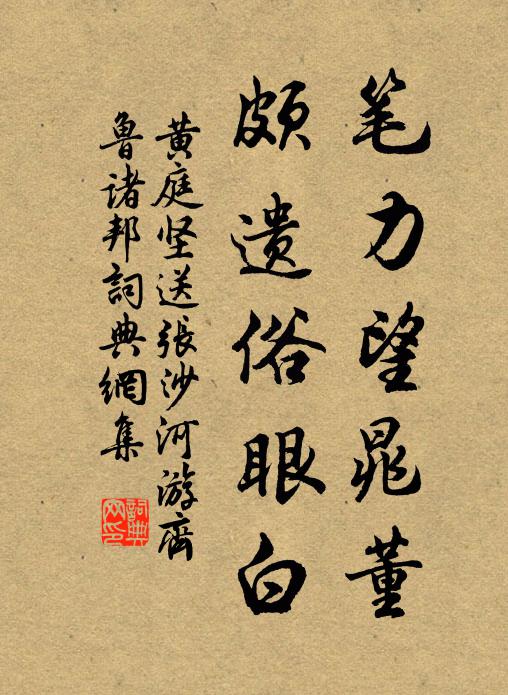 笔力望晁董
颇遗俗眼白
黄庭坚送張沙河游齊
魯诸邦詞典網集
詞典網印